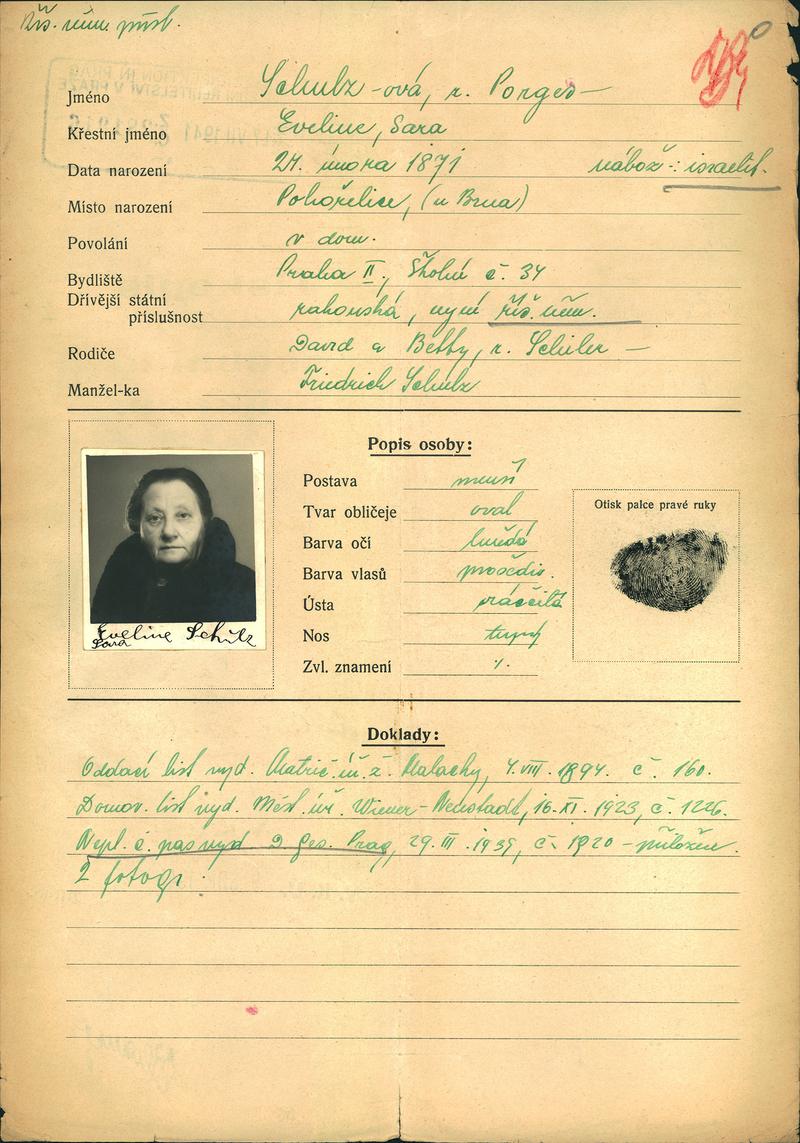 Říš. něm. přísl.
Jméno Schulz-ová, r. Porges
Křestní jméno Eveline, Sara
Data narození 24. února 1871 nábož.: israelit.
Místo narození Pohořelice, (u Brna)
Povolání v dom.
Bydliště Praha II, Školní č. 34
Dřívější státní
příslušnost rakouská, nyní říš. něm.
Rodiče David a Betty, r. Schüler
Manžel-ka Friedrich Schulz
Popis osoby:
Postava menší
Tvar obličeje oval
Barva očí hnědá
Barva vlasů prošediv.
Ústa
Nos tupý
Zvl. znamení ·/·
Otisk palce pravé ruky
Eveline Schulz
Sara
Doklady:
Oddací list vyd. Matrič. úř. ž. Malacky, 4. VIII. 1894. č. 160.
Domov. list vyd. Měst. úř. Wiener-Neustadt, 16. XI. 1923, č. 1226.
Nepl. č. pas vyd. D. Ges. Prag, 29. III. 1939, č. 1920 - přiložen.
2 fotogr.